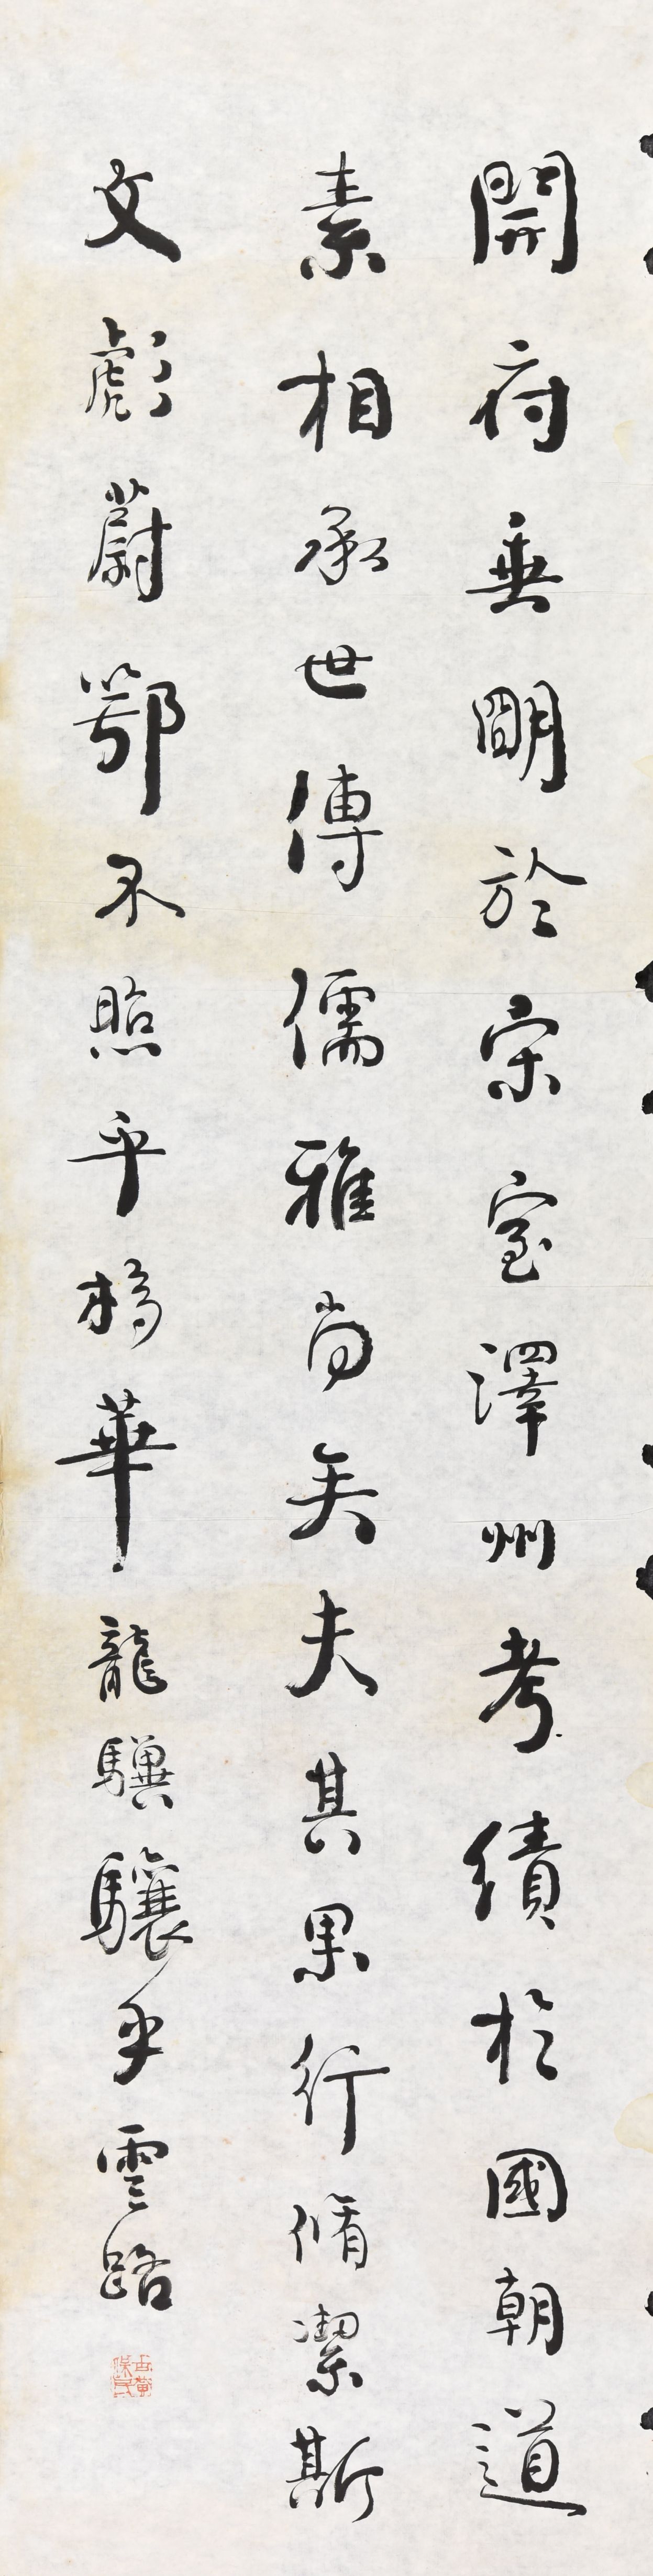 開府垂明於宋室澤州考績於國朝道
素相承世傳儒雅尚矣夫其果行脩潔斯
文彪蔚鄂不照乎栘華龍驥驤乎雲路